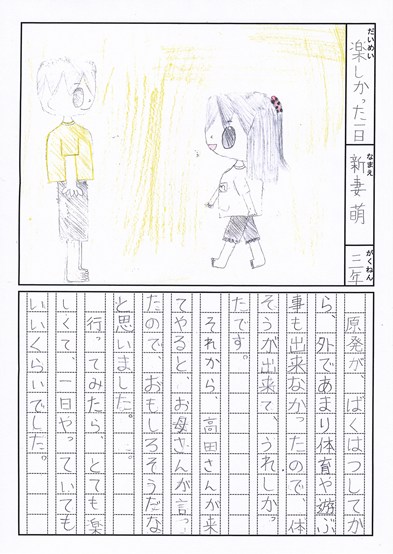 だいめい
楽しかった一日
なまえ
新妻 萌
がくねん
三年
原発が、ばくはつしてか
ら、外であまり体育や遊ぶ
事も出来なかったので、体
そうが出来て、うれしかっ
たです。
それから、高田さんが来
てやると、お母さんが言っ
たので、おもしろそうだな
と思いました。
行ってみたら、とても楽
しくて、一日やっていても
いいくらいでした。